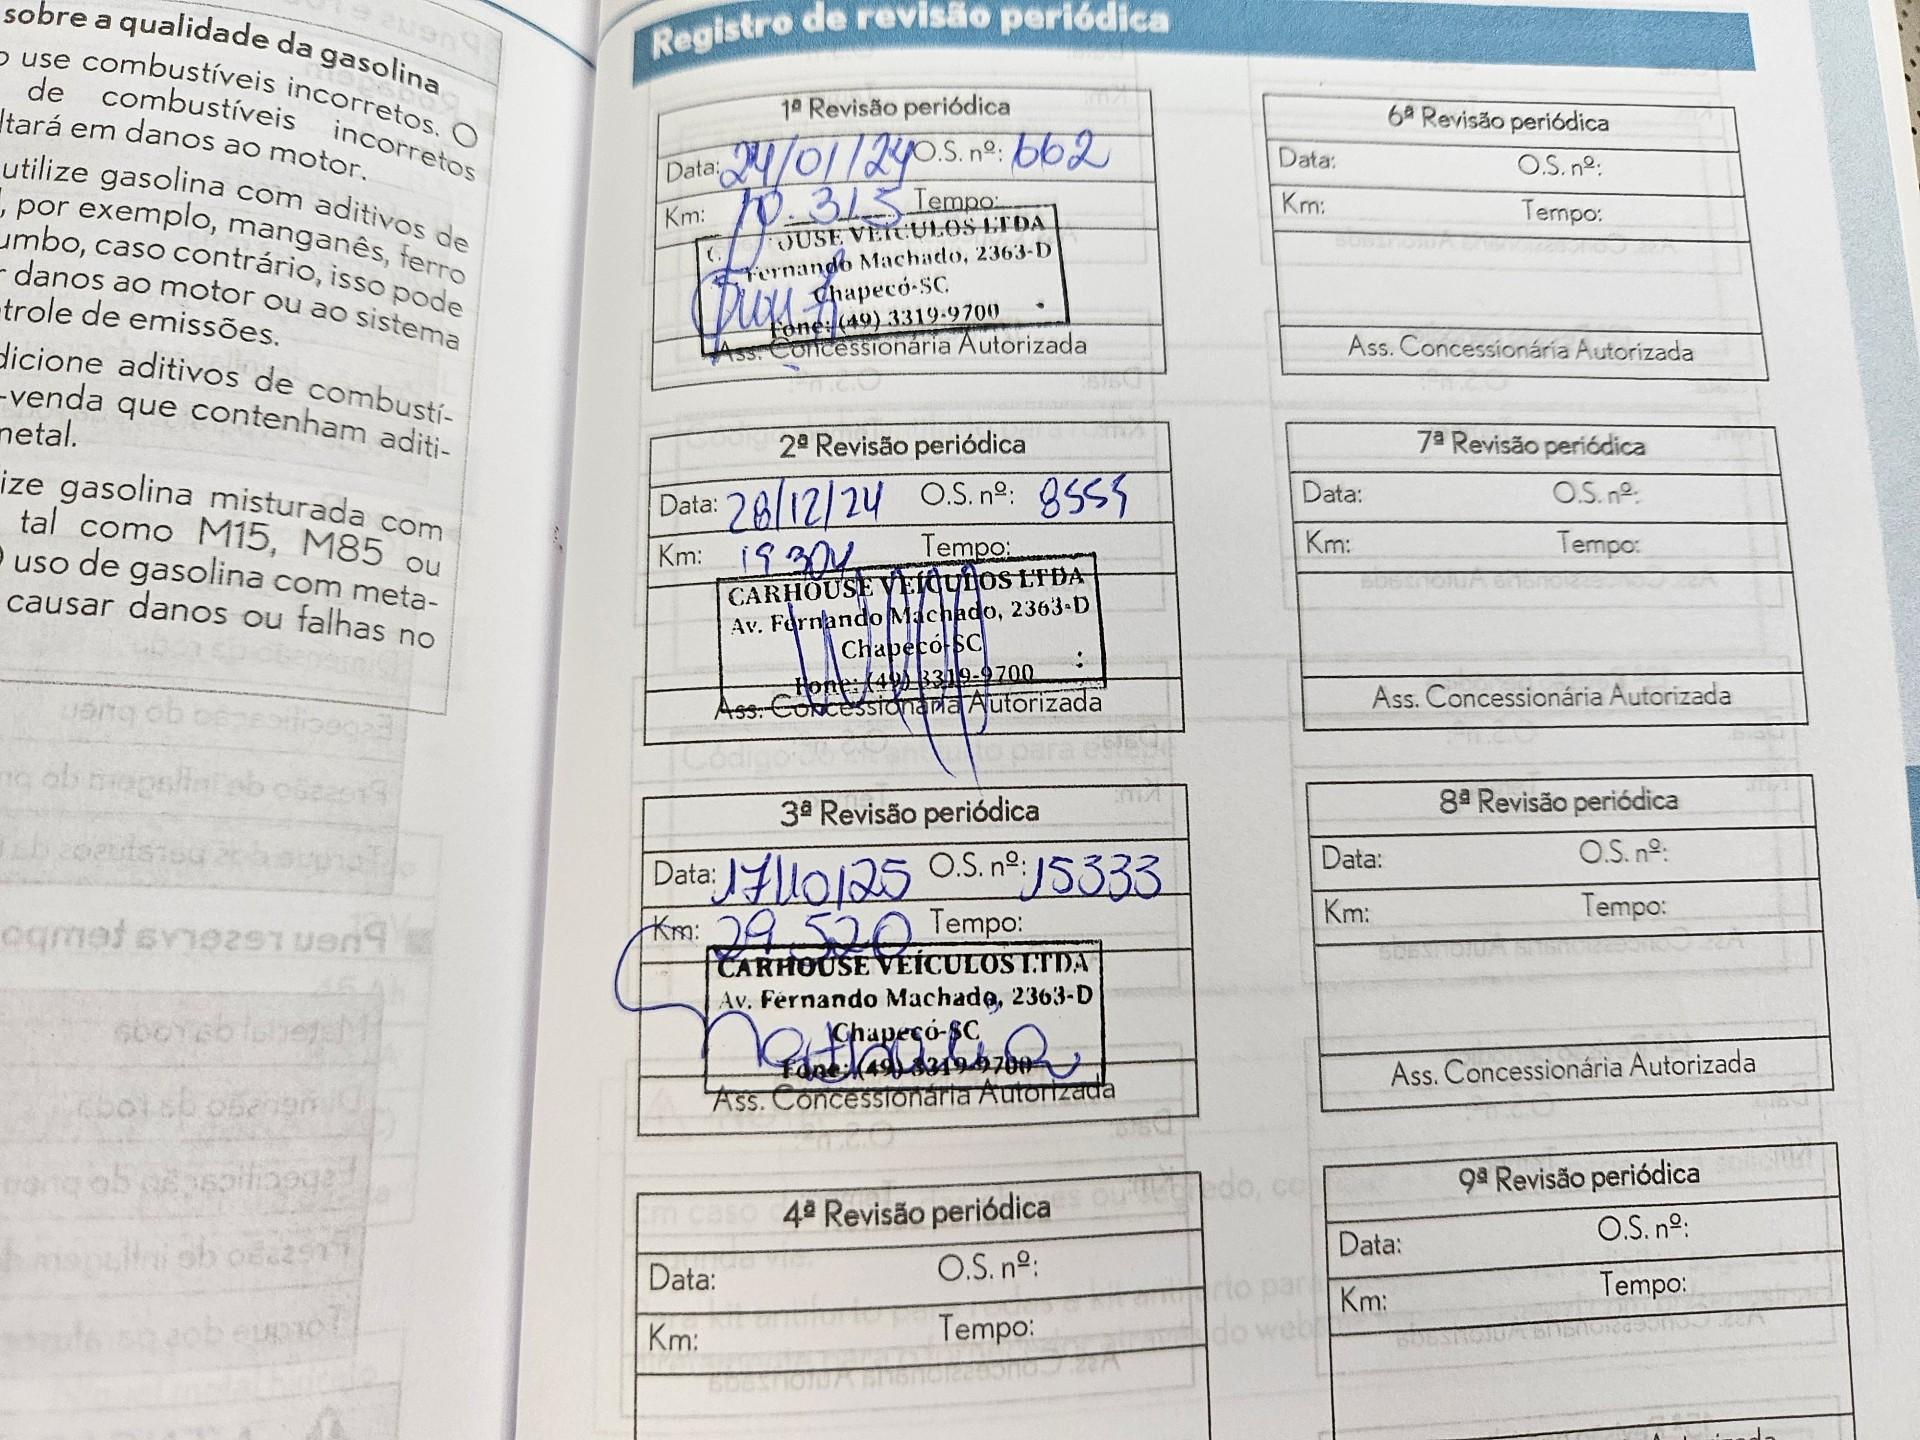 sobre a qualidade da gasolina
use combustíveis incorretos. O
de combustíveis incorretos
ltará em danos ao motor.
utilize gasolina com aditivos de
, por exemplo, manganês, ferro
umbo, caso contrário, isso pode
r danos ao motor ou ao sistema
trole de emissões.
dicione aditivos de combustí-
-venda que contenham aditi-
netal.
ize gasolina misturada com
tal como M15, M85 ou
uso de gasolina com meta-
causar danos ou falhas no
Registro de revisão periódica
1ª Revisão periódica
Data: 24/01/24 O.S. nº: 662
Km: 10.315 Tempo:
OUSE VEÍCULOS LTDA
Fernando Machado, 2363-D
Chapecó-SC
Fone: (49) 3319-9700
Ass. Concessionária Autorizada
2ª Revisão periódica
Data: 28/12/24 O.S. nº: 8559
Km: 19304 Tempo:
CARHOUSE VEÍCULOS LTDA
Av. Fernando Machado, 2363-D
Chapecó-SC
Fone: (49) 3319-9700
Ass. Concessionária Autorizada
3ª Revisão periódica
Data: 17/10/25 O.S. nº: 15333
Km: 29.520 Tempo:
CARHOUSE VEÍCULOS LTDA
Av. Fernando Machado, 2363-D
Chapecó-SC
Fone: (49) 3319-9700
Ass. Concessionária Autorizada
4ª Revisão periódica
Data: O.S. nº:
Km: Tempo:
6ª Revisão periódica
Data: O.S. nº:
Km: Tempo:
Ass. Concessionária Autorizada
7ª Revisão periódica
Data: O.S. nº:
Km: Tempo:
Ass. Concessionária Autorizada
8ª Revisão periódica
Data: O.S. nº:
Km: Tempo:
Ass. Concessionária Autorizada
9ª Revisão periódica
Data: O.S. nº:
Km: Tempo: